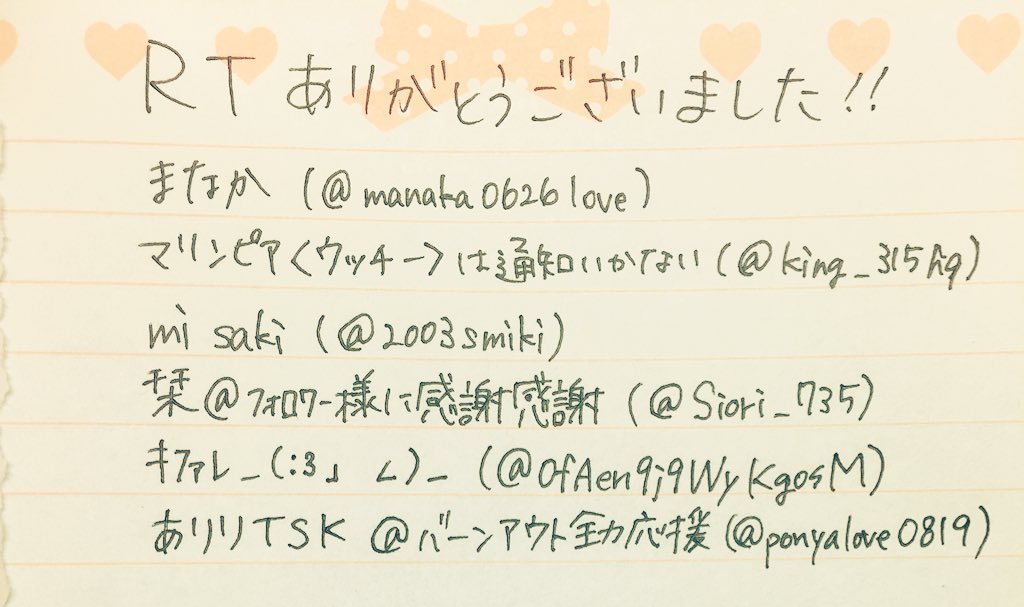 RTありがとうございました!!
まなか (@manaka0626love)
マリンピア<ウッチー>は通知いかない(@king_315hg)
mi saki (@2003smiki)
栞@フォロワー様に感謝感謝 (@Siori_735)
キファレ_(:3」∠)_ (@OfAen9j9WyKgosM)
ありりTSK @バーンアウト全力応援(@ponyalove0819)